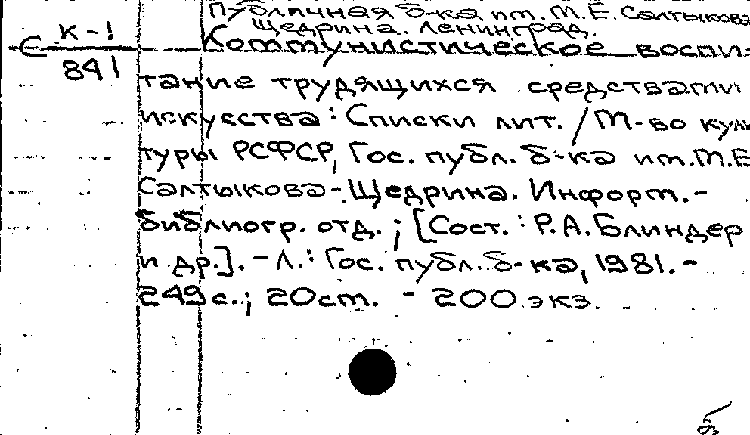 Публичная б-ка им. М.Е. Салтыкова-
Щедрина. Ленинград.
С К-1
841
Коммунистическое воспи-
тание трудящихся средствами
искусства: Списки лит. / М-во куль
туры РСФСР, Гос. публ. б-ка им. М.Е
Салтыкова-Щедрина. Информ.-
библиогр. отд. ; [Сост.: Р.А. Блиндер
и др.]. - Л.: Гос. публ. б-ка, 1981. -
249 с.; 20 см. - 200 экз.